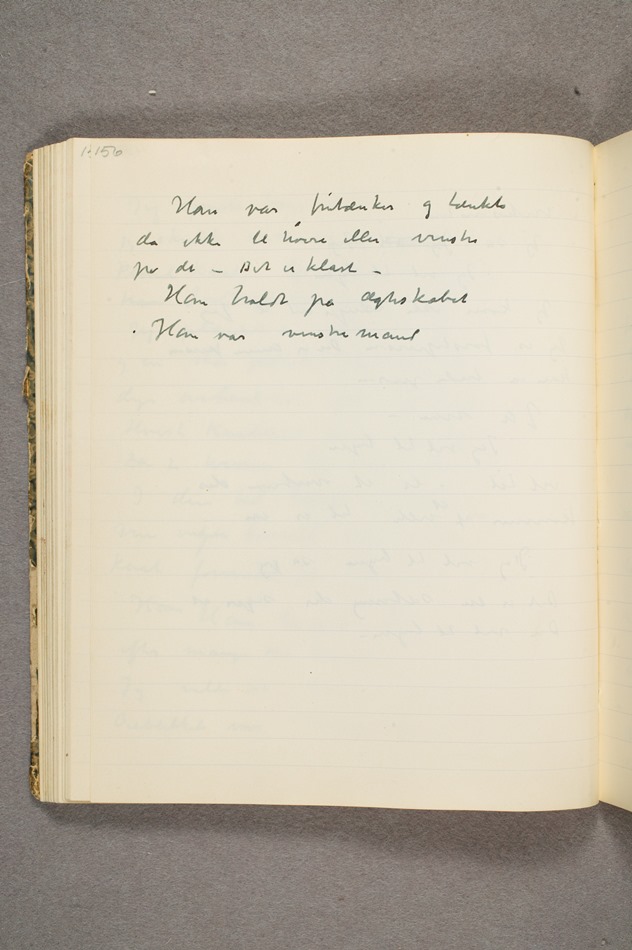 1.156
Han var fritænker og tænkte
da ikke til høire eller venstre
for det — Det er klart —
Han holdt på ægteskabet
Han var venstremand